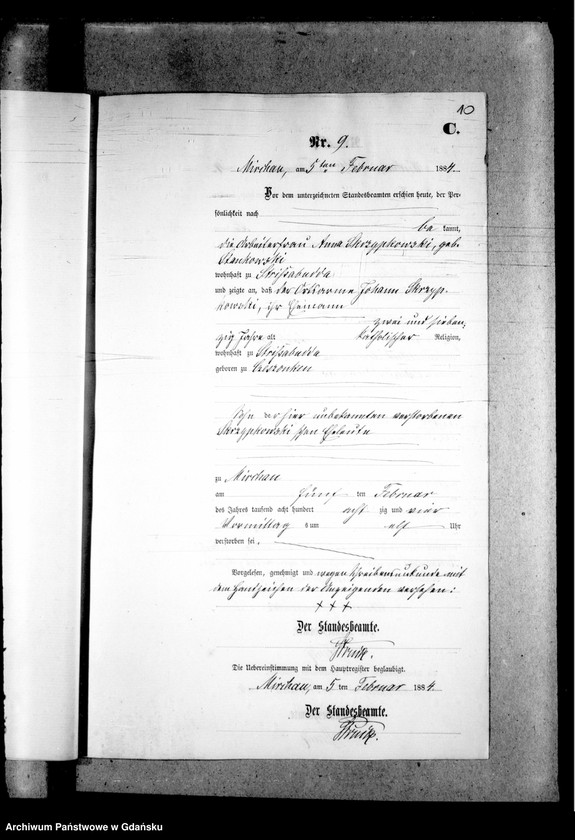 10
C.
Nr. 9.
Mirchau, am 5ten Februar 1884.
Vor dem unterzeichneten Standesbeamten erschien heute, der Per-
sönlichkeit nach
be kannt,
die Arbeiterfrau Anna Skrzypkowski, geb.
Stankowski
wohnhaft zu Strissabudda
und zeigte an, daß der Ortsarme Johann Skrzyp-
kowski, ihr Ehemann
zwei und sieben-
zig Jahre alt katholischer Religion,
wohnhaft zu Strissabudda
geboren zu
Sohn der hier unbekannten verstorbenen
Skrzypkowski'schen Eheleute
zu Mirchau
am fünf ten Februar
des Jahres tausend acht hundert acht zig und vier
Vormittag s um elf Uhr
verstorben sei.
Vorgelesen, genehmigt und wegen Schreibensunkunde mit
dem Handzeichen der Anzeigenden versehen:
+ + +
Der Standesbeamte.
Die Uebereinstimmung mit dem Hauptregister beglaubigt.
Mirchau, am 5 ten Februar 1884.
Der Standesbeamte.
Archiwum Państwowe w Gdańsku